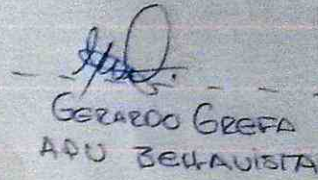 GERARDO GREFA
APU BELLAVISTA